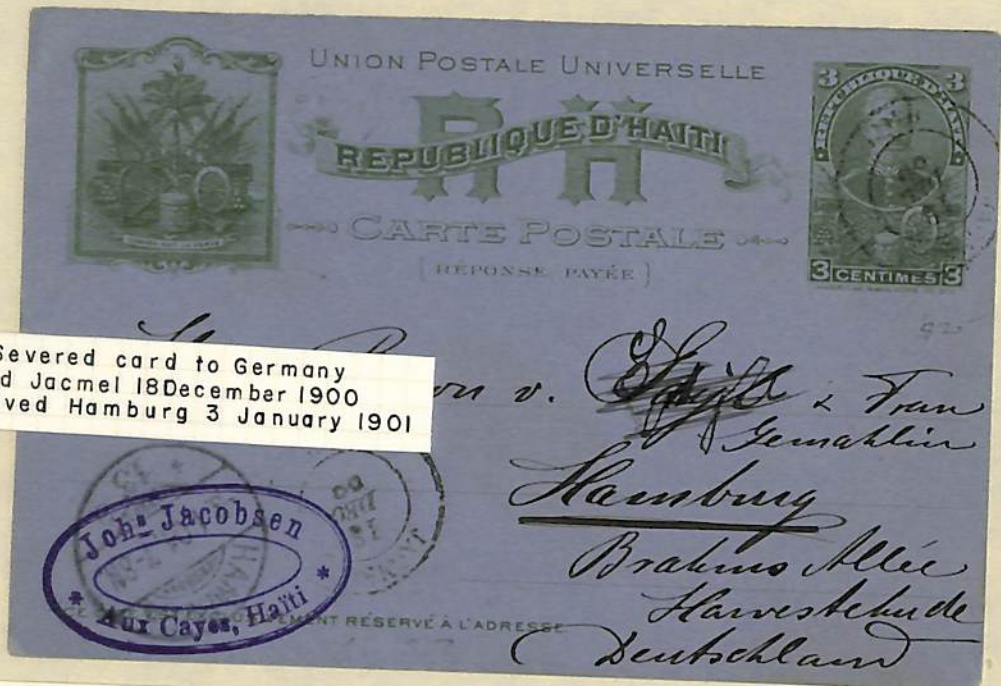 UNION POSTALE UNIVERSELLE
RH
REPUBLIQUE D'HAITI
CARTE POSTALE
(RÉPONSE PAYÉE)
3 3
REPUBLIQUE D'HAITI
3 CENTIMES 3
Severed card to Germany
d Jacmel 18 December 1900
ved Hamburg 3 January 1901
v. & Frau
Gemahlin
Hamburg
Brahms Allée
Harvestehude
Deutschland
18
DEC
00
Johs Jacobsen
* Aux Cayes, Haïti *
MENT RÉSERVÉ À L'ADRESSE